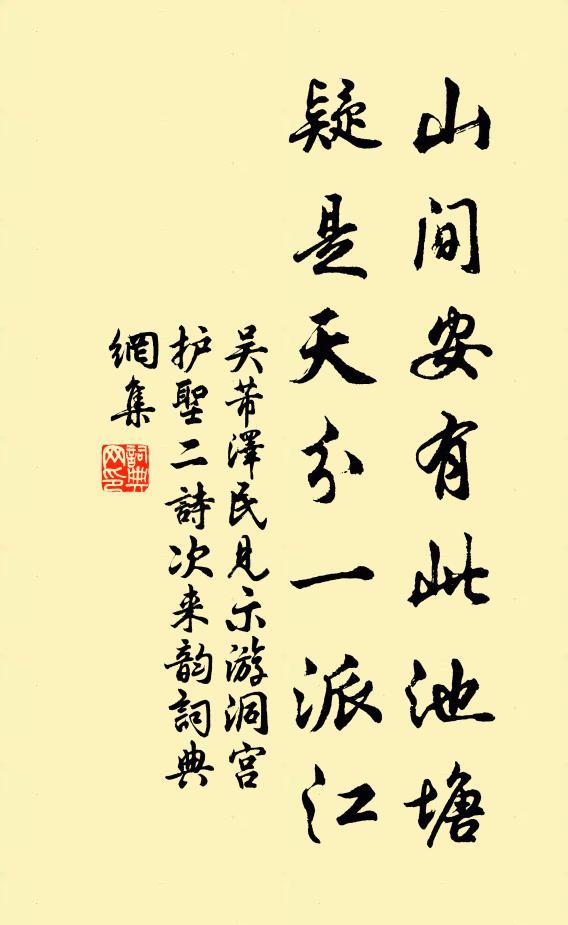 山间安有此池塘
疑是天分一派江
吴芾澤民见示游洞宫
护聖二詩次来韵詞典
網集
詞典
网印